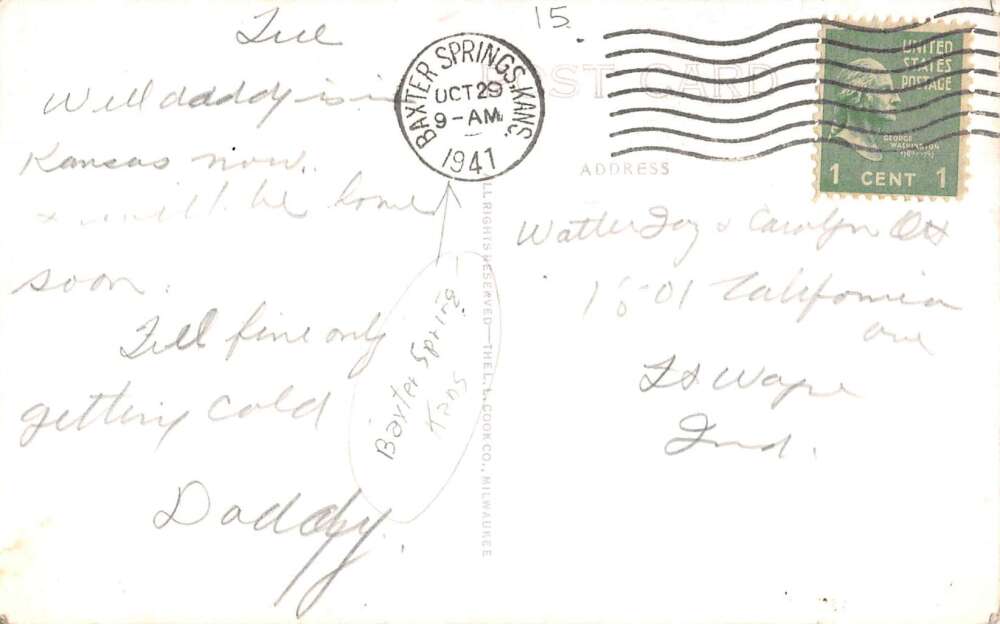 15.
Tue
Well daddy is in
Kansas now.
& will be home
soon.
Feel fine only
getting cold
Daddy.
BAXTER SPRINGS, KANS.
OCT 29
9-AM
1941
Baxter Spring
Kans
ALL RIGHTS RESERVED - THE L. L. COOK CO., MILWAUKEE
POST CARD
ADDRESS
UNITED
STATES
POSTAGE
GEORGE
WASHINGTON
1 CENT 1
Walter Joy & Carolyn
1601 California
ave
Ft Wayne
Ind.